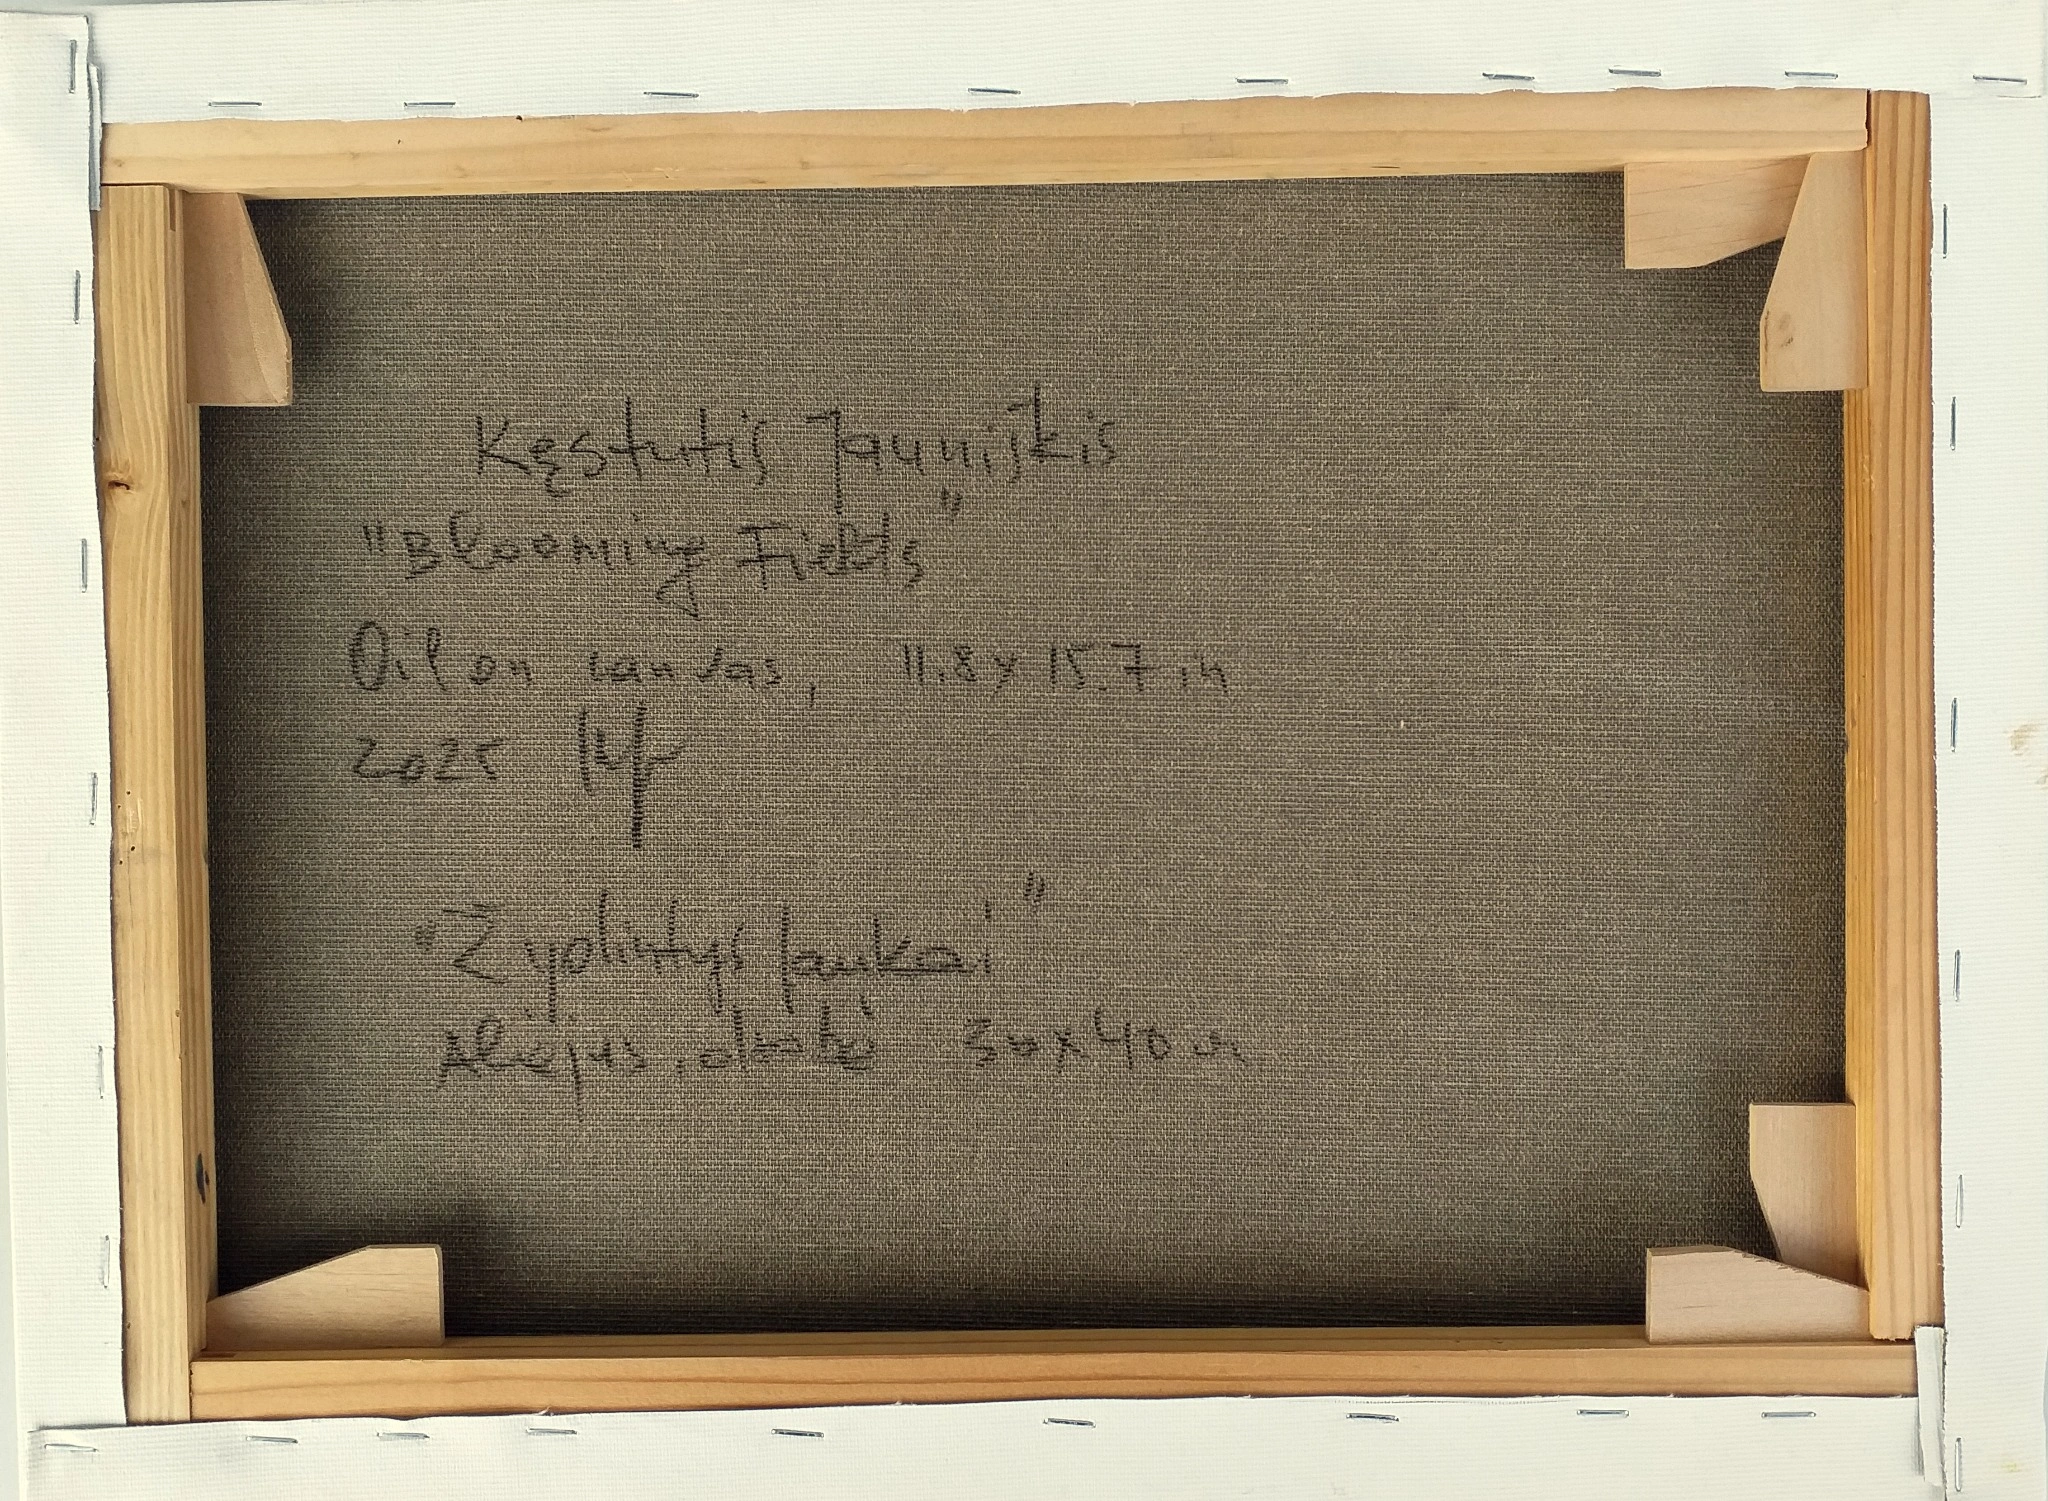 Kęstutis Jauniškis
"Blooming Fields"
Oil on canvas, 11.8 x 15.7 in
2025
"Žydintys laukai"
Aliejus, drobė 30x40 cm